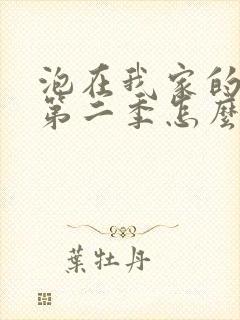 泡在我家的
第二季怎麼
葉牡丹